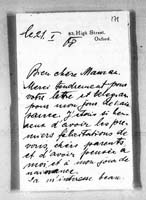 171
le 21. I
22, High Street,
Oxford.
Bien chère Maman.
Merci tendrement pour
votre lettre et telegram
pour mon jour de nais
sance. J'étais si heu-
reux d'avoir les pre-
miers félicitations de
vous, chers parents
et d'avoir pensée a
moi et à mon jour de
naissance.
Ça m'interesse beau